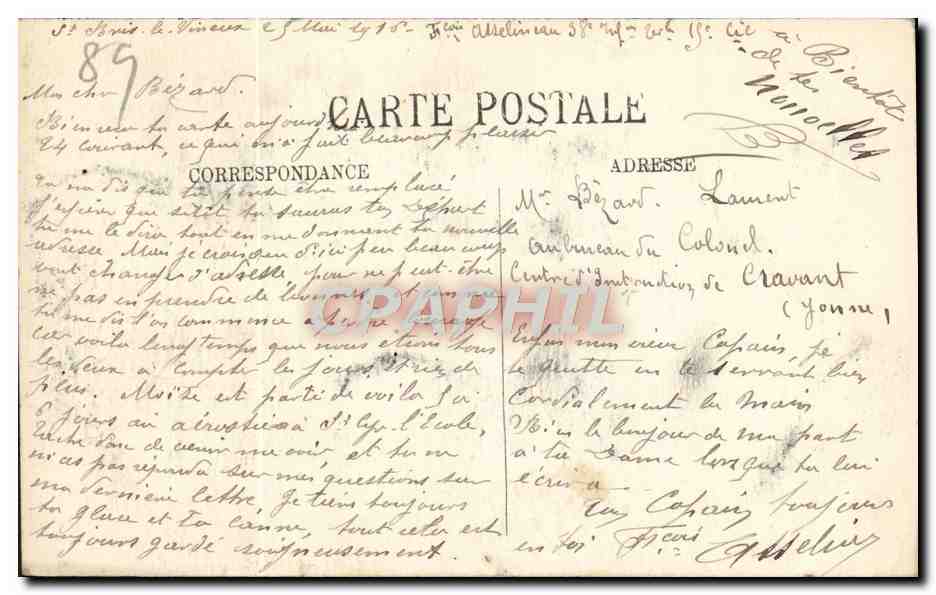 St Bris-le-Vineux 25 Mai 1916 Fçois Asselineau 38e 15e Cie
à Bientôt
de tes
nouvelles
89
Mon cher Bézard.
CARTE POSTALE
Bien reçu ta carte aujourd
24 courant, ce qui m'a fait beaucoup plaisir
CORRESPONDANCE
tu me dis que tu peut être remplacé
j'espère que sitôt tu sauras ton Départ
tu me le diras tout en me donnant ta nouvelle
adresse. Mais je crois que d'ici peu beaucoup
vont changer d'adresse, pour ne peut-être
ne pas en prendre de bonnes, et comme
tu me dis l'on commence a perdre courage
car voila longtemps que nous étions tous
les deux a compter les jours et rien de
plus. Moïse est parti de voila 5 à
6 jours au aérostiers à St Cyr-l'Ecole,
tache donc de venir me voir, et tu ne
m'as pas répondu sur mes questions sur
ma dernière lettre, je tiens toujours
ta glace et ta canne, tout cela est
toujours gardé soigneusement.
ADRESSE
Mr Bézard. Laurent
au bureau du Colonel.
Centre d'Instruction de Cravant
(Yonne)
Enfin mon vieux Copain, je
te quitte en te serrant bien
Cordialement la main
Bien le bonjour de ma part
à ta Dame lorsque tu lui
écrira
un Copain toujours
en toi Fçois Asselineau
CPAPHIL